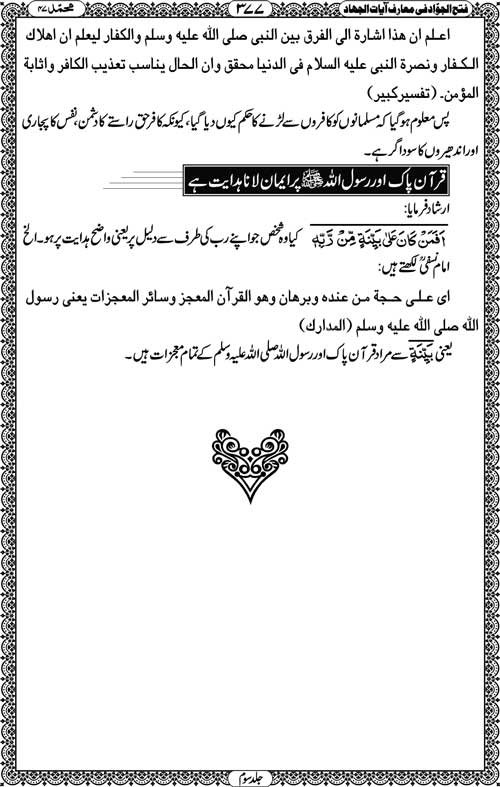 فتح الجوّاد فی معارف آیات الجهاد
۳۷۷
محمّد ۴۷
اعلم ان هذا اشارة الى الفرق بين النبى صلى الله عليه وسلم والكفار ليعلم ان اهلاك
الكفار ونصرة النبى عليه السلام فى الدنيا محقق وان الحال يناسب تعذيب الكافر واثابة
المؤمن۔ (تفسیر کبیر)
پس معلوم ہو گیا کہ مسلمانوں کو کافروں سے لڑنے کا حکم کیوں دیا گیا، کیونکہ کافر حق راستے کا دشمن، نفس کا پجاری
اور اندھیروں کا سوداگر ہے۔
قرآن پاک اور رسول اللہ ﷺ پر ایمان لانا ہدایت ہے
ارشاد فرمایا:
اَفَمَنْ كَانَ عَلٰى بَيِّنَةٍ مِّنْ رَّبِّهٖ کیا وہ شخص جو اپنے رب کی طرف سے دلیل پر یعنی واضح ہدایت پر ہو۔ الخ
امام نسفیؒ لکھتے ہیں:
اى على حجة من عنده وبرهان وهو القرآن المعجز وسائر المعجزات يعنى رسول
الله صلى الله عليه وسلم (المدارك)
یعنی بَيِّنَةٍ سے مراد قرآن پاک اور رسول اللہ صلی اللہ علیہ وسلم کے تمام معجزات ہیں۔
جلد سوم